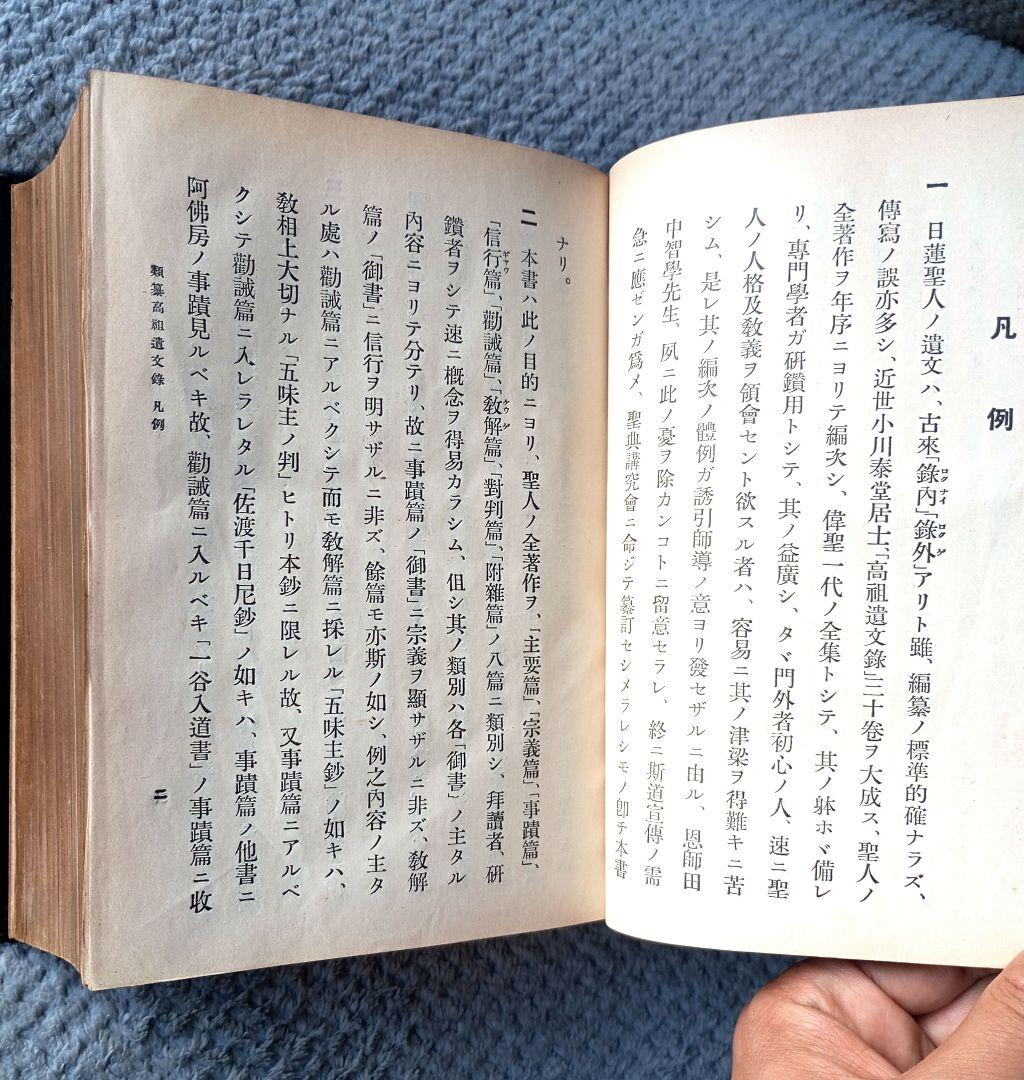 凡例
一 日蓮聖人ノ遺文ハ、古來「錄內」「錄外」アリト雖、編纂ノ標準的確ナラズ、
傳寫ノ誤亦多シ、近世小川泰堂居士、「高祖遺文錄」三十卷ヲ大成ス、聖人ノ
全著作ヲ年序ニヨリテ編次シ、偉聖一代ノ全集トシテ、其ノ躰ホヾ備レ
リ、專門學者ガ硏鑽用トシテ、其ノ益廣シ、タヾ門外者初心ノ人、速ニ聖
人ノ人格及敎義ヲ領會セント欲スル者ハ、容易ニ其ノ津梁ヲ得難キニ苦
シム、是レ其ノ編次ノ體例ガ誘引師導ノ意ヨリ發セザルニ由ル、恩師田
中智學先生、夙ニ此ノ憂ヲ除カンコトニ留意セラレ、終ニ斯道宣傳ノ需
急ニ應ゼンガ爲メ、聖典講究會ニ命ジテ纂訂セシメラレシモノ卽チ本書
ナリ。
二 本書ハ此ノ目的ニヨリ、聖人ノ全著作ヲ、「主要篇」、「宗義篇」、「事蹟篇」、
「信行篇」、「勸誡篇」、「敎解篇」、「對判篇」、「附雜篇」ノ八篇ニ類別シ、拜讀者、硏
鑽者ヲシテ速ニ槪念ヲ得易カラシム、伹シ其ノ類別ハ各「御書」ノ主タル
內容ニヨリテ分テリ、故ニ事蹟篇ノ「御書」ニ宗義ヲ顯サザルニ非ズ、敎解
篇ノ「御書」ニ信行ヲ明サザルニ非ズ、餘篇モ亦斯ノ如シ、例之內容ノ主タ
ル處ハ勸誡篇ニアルベクシテ而モ敎解篇ニ採レル「五味主鈔」ノ如キハ、
敎相上大切ナル「五味主ノ判」ヒトリ本鈔ニ限レル故、又事蹟篇ニアルベ
クシテ勸誡篇ニ入レラレタル「佐渡千日尼鈔」ノ如キハ、事蹟篇ノ他書ニ
阿佛房ノ事蹟見ルベキ故、勸誡篇ニ入ルベキ「一谷入道書」ノ事蹟篇ニ收
類纂高祖遺文錄 凡例
二